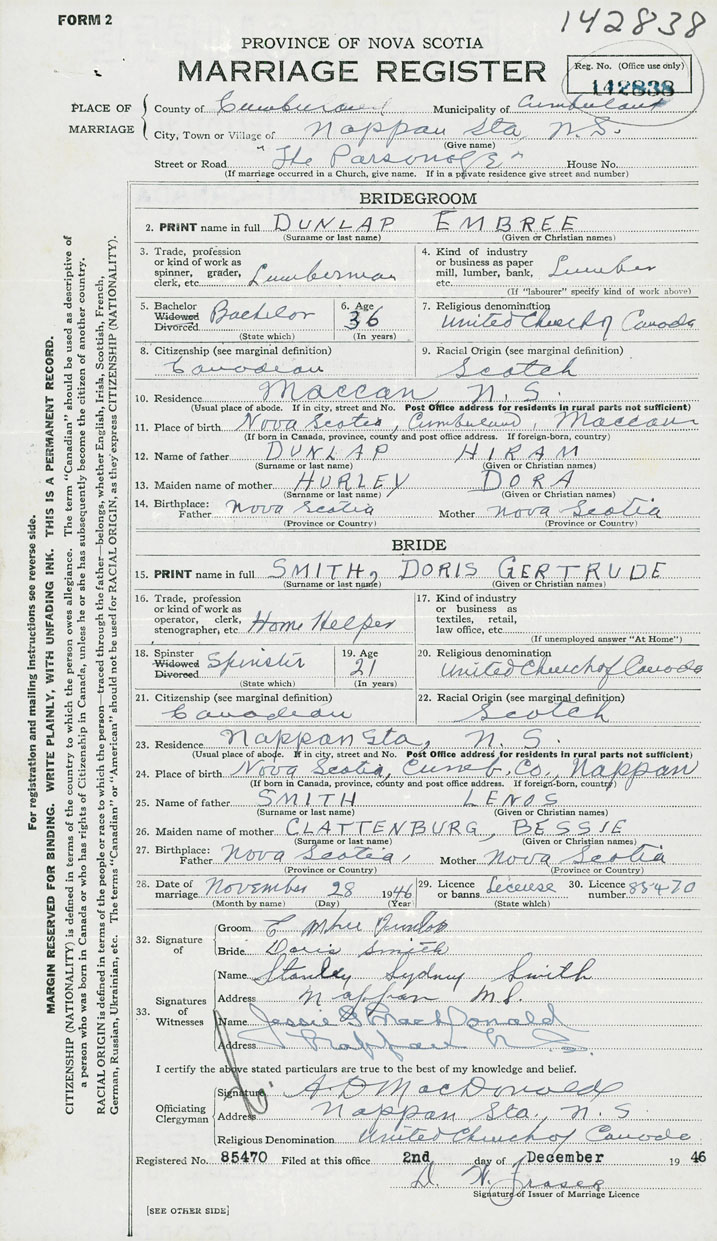 FORM 2
142838
PROVINCE OF NOVA SCOTIA
MARRIAGE REGISTER
Reg. No. (Office use only)
142838
PLACE OF MARRIAGE
County of Cumberland Municipality of Cumberland
City, Town or Village of Nappan Sta, N.S.
(Give name)
Street or Road "The Parsonage" House No.
(If marriage occurred in a Church, give name. If in a private residence give street and number)
BRIDEGROOM
2. PRINT name in full DUNLAP EMBREE
(Surname or last name) (Given or Christian names)
3. Trade, profession or kind of work as spinner, grader, clerk, etc. Lumberman
4. Kind of industry or business as paper mill, lumber, bank, etc. Lumber
(If "labourer" specify kind of work above)
5. Bachelor Widowed Divorced Bachelor
(State which)
6. Age 36
(In years)
7. Religious denomination United Church of Canada
8. Citizenship (see marginal definition) Canadian
9. Racial Origin (see marginal definition) Scotch
10. Residence Maccan N.S.
(Usual place of abode. If in city, street and No. Post Office address for residents in rural parts not sufficient)
11. Place of birth Nova Scotia, Cumberland, Maccan
(If born in Canada, province, county and post office address. If foreign-born, country)
12. Name of father DUNLAP HIRAM
(Surname or last name) (Given or Christian names)
13. Maiden name of mother HURLEY DORA
(Surname or last name) (Given or Christian names)
14. Birthplace: Father Nova Scotia Mother Nova Scotia
(Province or Country) (Province or Country)
BRIDE
15. PRINT name in full SMITH, DORIS GERTRUDE
(Surname or last name) (Given or Christian names)
16. Trade, profession or kind of work as operator, clerk, stenographer, etc. Home Helper
17. Kind of industry or business as textiles, retail, law office, etc.
(If unemployed answer "At Home")
18. Spinster Widowed Divorced Spinster
(State which)
19. Age 21
(In years)
20. Religious denomination United Church of Canada
21. Citizenship (see marginal definition) Canadian
22. Racial Origin (see marginal definition) Scotch
23. Residence Nappan Sta, N.S.
(Usual place of abode. If in city, street and No. Post Office address for residents in rural parts not sufficient)
24. Place of birth Nova Scotia, Cumb. Co., Nappan
(If born in Canada, province, county and post office address. If foreign-born, country)
25. Name of father SMITH LENOS
(Surname or last name) (Given or Christian names)
26. Maiden name of mother CLATTENBURG, BESSIE
(Surname or last name) (Given or Christian names)
27. Birthplace: Father Nova Scotia, Mother Nova Scotia
(Province or Country) (Province or Country)
28. Date of marriage November 28 1946
(Month by name) (Day) (Year)
29. Licence or banns License
(State which)
30. Licence number 85470
32. Signature of
Groom Embree Dunlap
Bride Doris Smith
33. Signatures of Witnesses
Name Stanley Sydney Smith
Address Nappan N.S.
Name Jessie G MacDonald
Address Nappan N.S.
I certify the above stated particulars are true to the best of my knowledge and belief.
Officiating Clergyman
Signature A D MacDonald
Address Nappan Sta., N.S
Religious Denomination United Church of Canada
Registered No. 85470 Filed at this office 2nd day of December 1946
D. W. Fraser
Signature of Issuer of Marriage Licence
[SEE OTHER SIDE]
For registration and mailing instructions see reverse side.
MARGIN RESERVED FOR BINDING. WRITE PLAINLY, WITH UNFADING INK. THIS IS A PERMANENT RECORD.
CITIZENSHIP (NATIONALITY) is defined in terms of the country to which the person owes allegiance. The term "Canadian" should be used as descriptive of
a person who was born in Canada or who has rights of Citizenship in Canada, unless he or she has subsequently become the citizen of another country.
RACIAL ORIGIN is defined in terms of the people or race to which the person—traced through the father—belongs, whether English, Irish, Scottish, French,
German, Russian, Ukrainian, etc. The terms "Canadian" or "American" should not be used for RACIAL ORIGIN, as they express CITIZENSHIP (NATIONALITY).